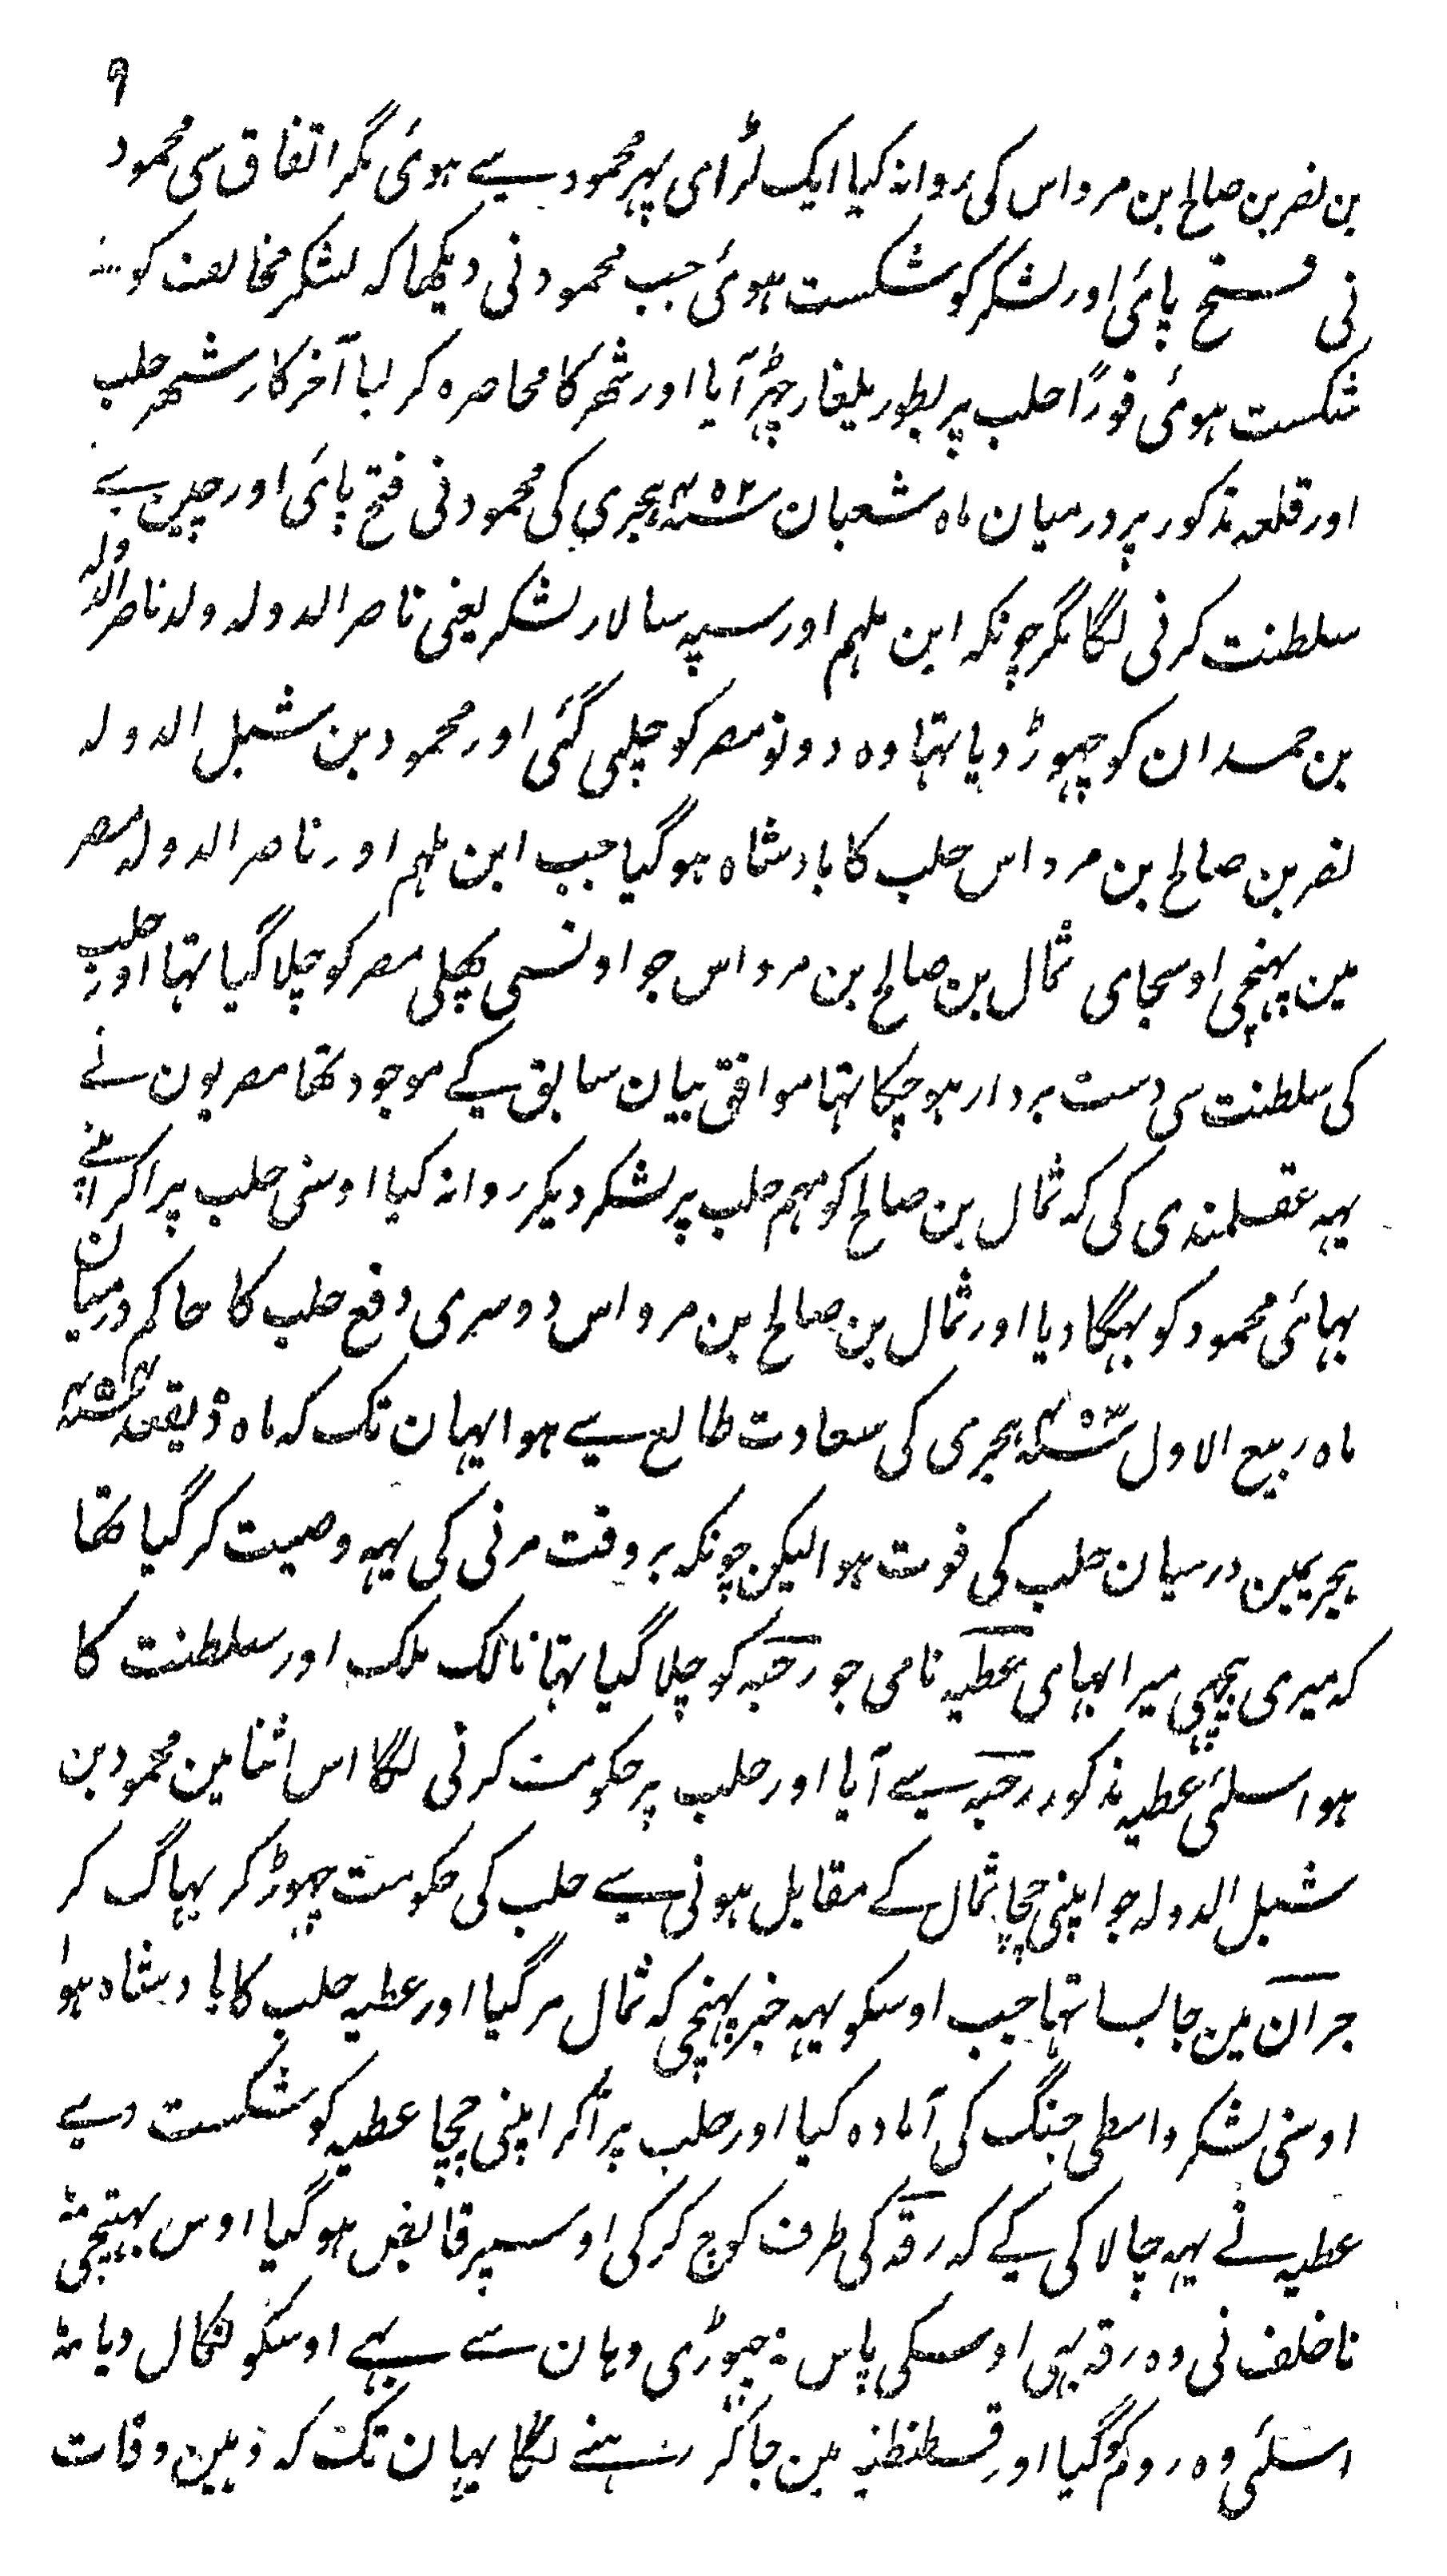 ۹
بن نصر بن صالح بن مرداس کی روانہ کیا ایک لڑامی پہر محمود سے ہوئی مگر اتفاق سی محمود
نی فتح پائی اور لشکر کو شکست ہوئی جب محمود نی دیکھا کہ لشکر مخالف کو
شکست ہوئی فوراً حلب پر بطور یلغار چڑہ آیا اور شہر کا محاصرہ کر لیا آخر کار شہر حلب
اور قلعہ مذکور پر درمیان ماہ شعبان سنہ ۴۵۲ ہجری کی محمود نی فتح پائی اور چین سے
سلطنت کرنی لگا مگر چونکہ ابن ملہم اور سپہ سالار لشکر یعنی ناصر الدولہ ولد ناصر الدولہ
بن حمدان کو چہوڑ دیا تہا وہ دونو مصر کو چلی گئی اور محمود بن شبل الدولہ
نصر بن صالح بن مرداس حلب کا بادشاہ ہو گیا جب ابن ملہم اور ناصر الدولہ مصر
مین پہنچی اوسجای ثمال بن صالح بن مرداس جو اونسی پہلی مصر کو چلا گیا تہا اور حلب
کی سلطنت سی دست بردار ہو چکا تہا موافق بیان سابق کے موجود تھا مصریون نے
یہہ عقلمندی کی کہ ثمال بن صالح کو مہم حلب پر لشکر دیکر روانہ کیا اوسنی حلب پر اکر اپنے
بہائی محمود کو بہگا دیا اور ثمال بن صالح بن مرداس دوسری دفع حلب کا حاکم درمیان
ماہ ربیع الاول سنہ ۴۵۳ ہجری کی سعادت طالع سے ہوا یہان تک کہ ماہ ذیقعہ سنہ ۴۵۴
ہجریمین درمیان حلب کی فوت ہوا لیکن چونکہ بروقت مرنی کی یہہ وصیت کر گیا تھا
کہ میری پیچہی میرا بہای عطیہ نامی جو رحبہ کو چلا گیا تہا مالک ملک اور سلطنت کا
ہو اسلئی عطیہ مذکور رحبہ سے آیا اور حلب پر حکومت کرنی لگا اس اثنا مین محمود بن
شبل الدولہ جو اپنی چچا ثمال کے مقابل ہونی سے حلب کی حکومت چہوڑ کر بہاگ کر
حران مین جا بسا تہا جب اوسکو یہہ خبر پہنچی کہ ثمال مر گیا اور عطیہ حلب کا بادشاہ ہوا
اوسنی لشکر واسطی جنگ کی آمادہ کیا اور حلب پر آکر اپنی چچا عطیہ کو شکست دے
عطیہ نے یہہ چالاکی کے کہ رقہ کی طرف کوچ کر کی اوسپر قابض ہو گیا اوس بہتیجی
ناخلف نی وہ رقہ بہی اوسکی پاس نہ چہوڑی وہان سے بہے اوسکو نکال دیا
اسلئی وہ روم کو گیا اور قسطنطنیہ مین جا کر رہنے لگا یہان تک کہ وہین وفات